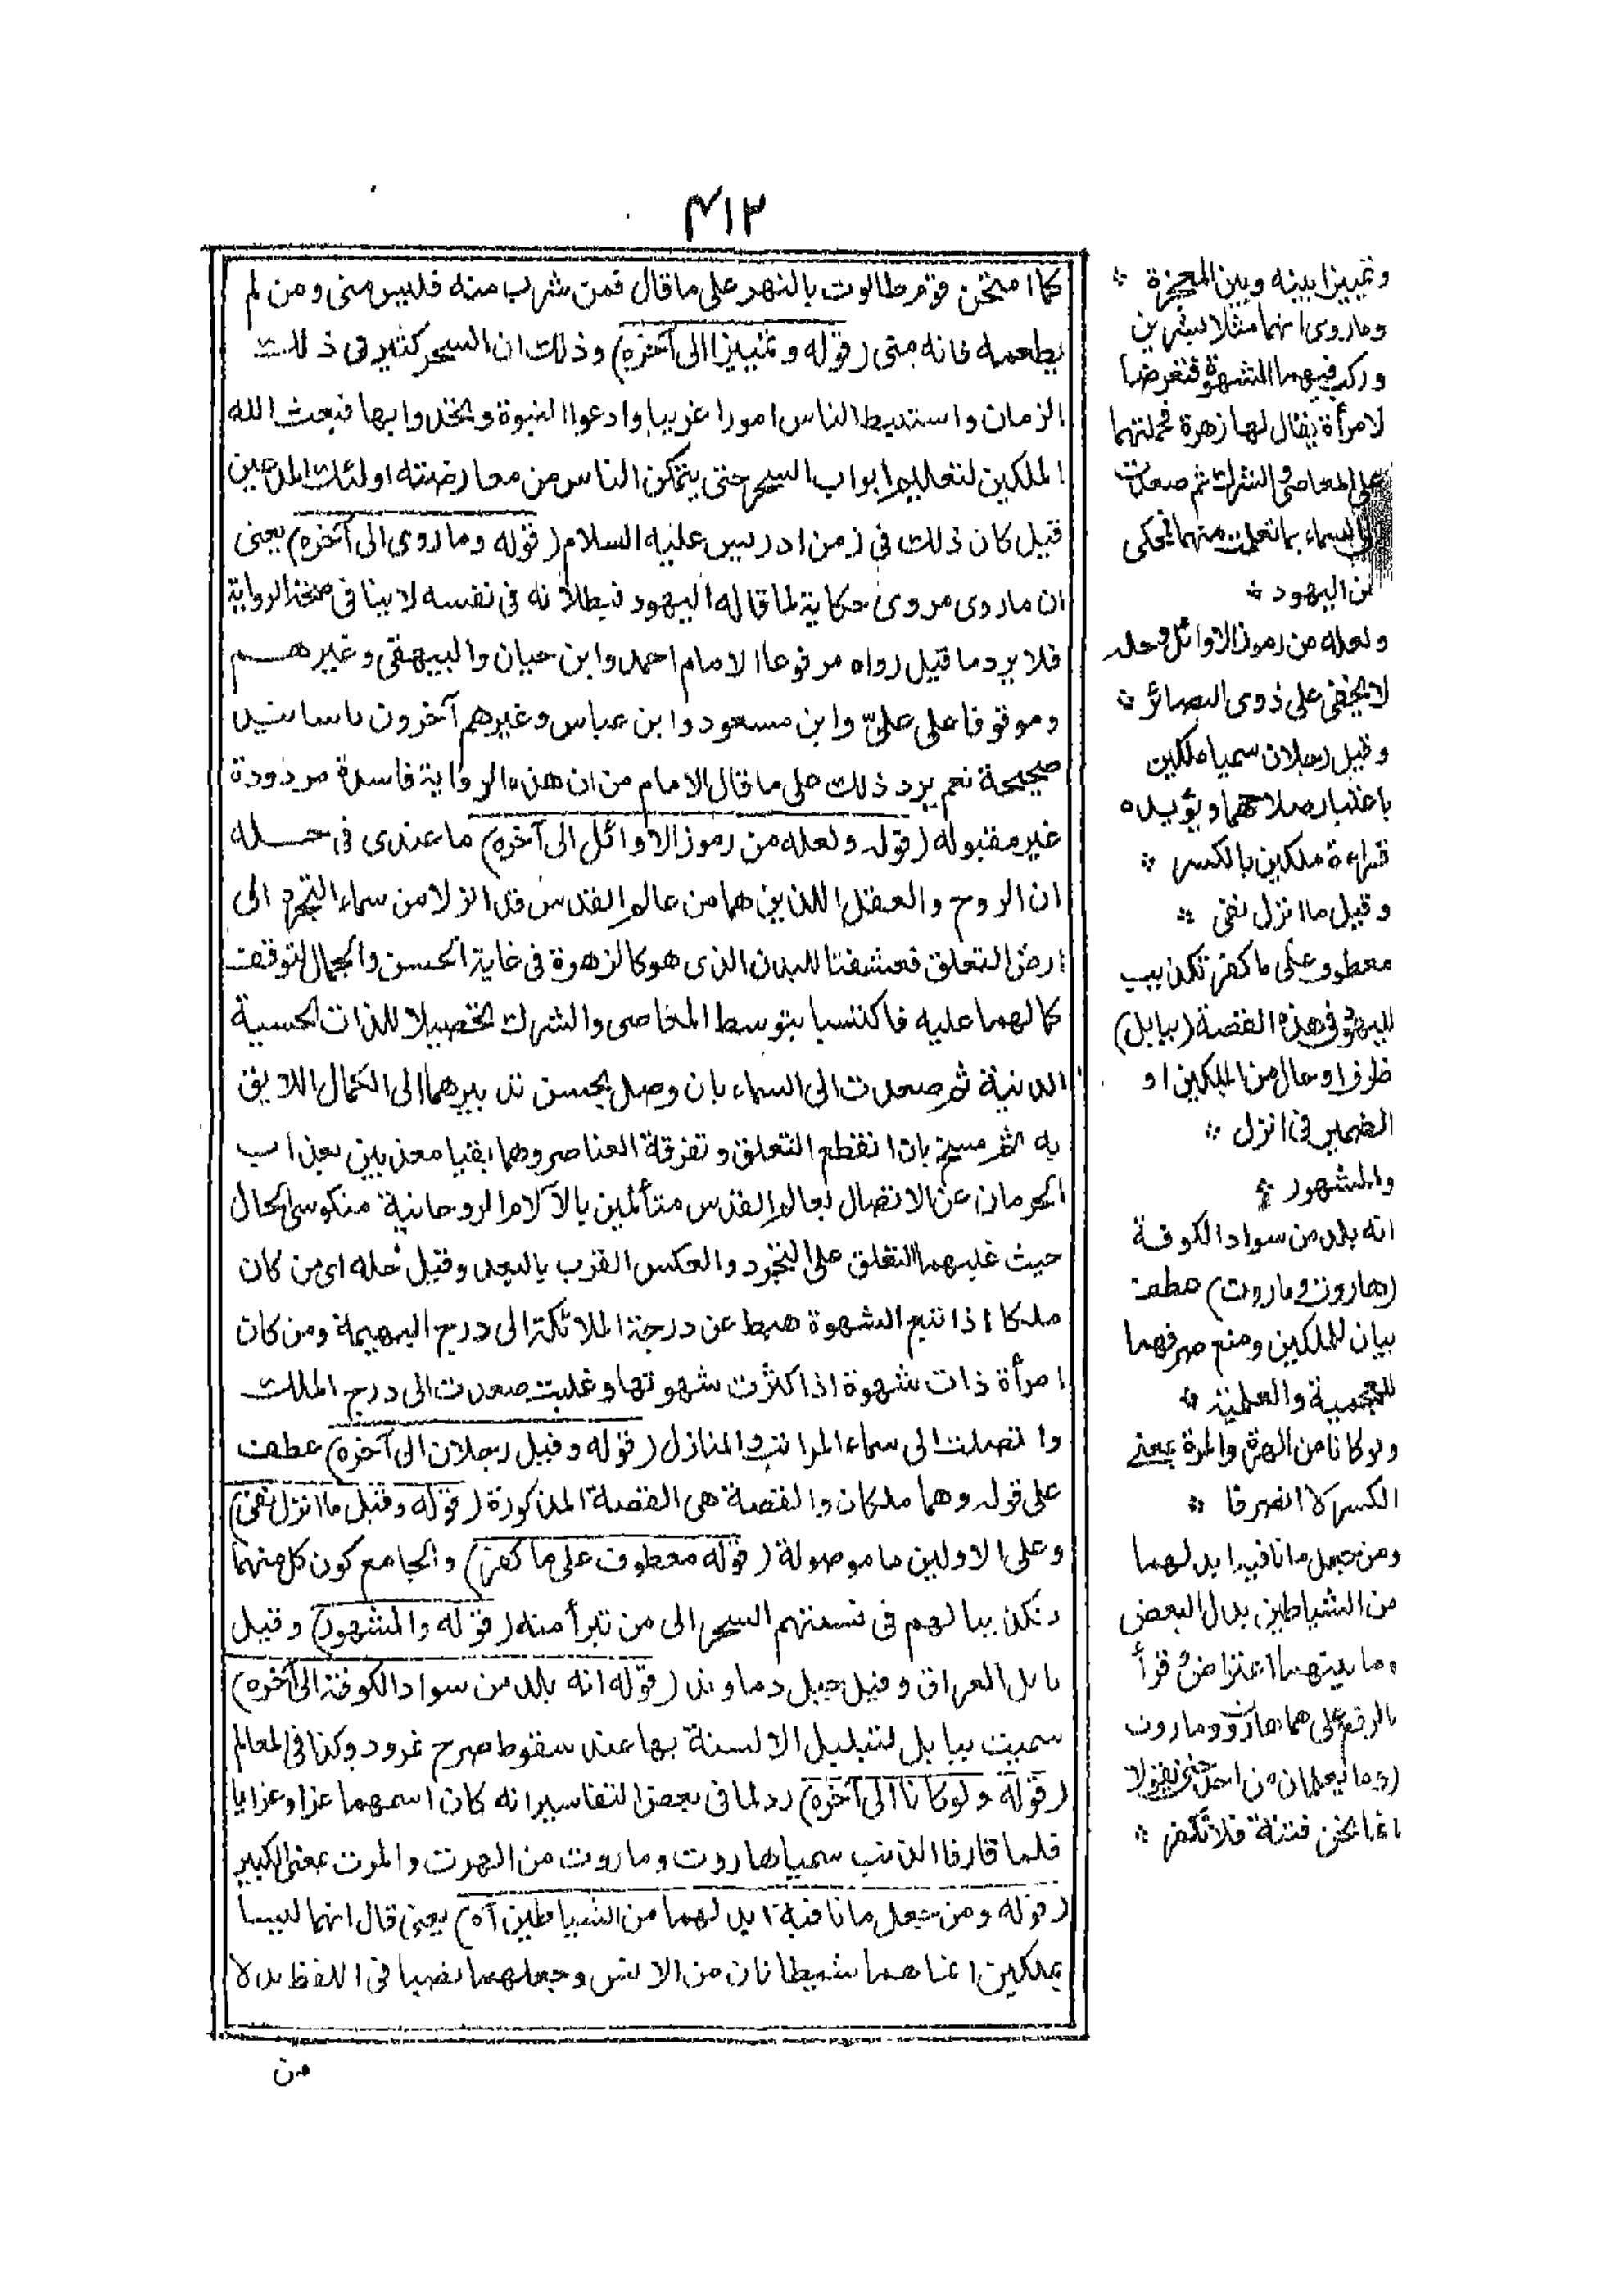 ٤١٢
كما امتحن قوم طالوت بالنهر على ما قال فمن شرب منه فليس منى ومن لم
يطعمه فانه منى (قوله وتمييزا الى آخره) وذلك ان السحر كثير فى ذلك
الزمان واستنبط الناس امورا غريبا وادعوا النبوة وتحدوا بها فبعث الله
الملكين لتعليم ابواب السحر حتى يتمكن الناس من معارضته اولئك المدعين
قيل كان ذلك فى زمن ادريس عليه السلام (قوله وماروى الى آخره) يعنى
ان ماروى مروى حكاية لما قاله اليهود فبطلانه فى نفسه لا ينافى صحة الرواية
فلا يرد ما قيل رواه مرفوعا الامام احمد وابن حبان والبيهقى وغيرهم
وموقوفا على علىّ وابن مسعود وابن عباس وغيرهم آخرون باسانيد
صحيحة نعم يرد ذلك على ما قال الامام من ان هذه الرواية فاسدة مردودة
غير مقبوله (قوله ولعله من رموز الاوائل الى آخره) ما عندى فى حله
ان الروح والعقل اللذين هما من عالم القدس قد انزلا من سماء التجرد الى
ارض التعلق فعشقتا للبدن الذى هو كالزهرة فى غاية الحسن والجمال لتوقف
كمالهما عليه فاكتسبا بتوسط المعاصى والشرك تحصيلا للذات الحسية
الدنية ثم صعدت الى السماء بان وصل بحسن تدبيرهما الى الكمال اللايق
به ثم مسخ بان انقطع التعلق وتفرقة العناصر وهما بقيا معذبين بعذاب
الحرمان عن الاتصال بعالم القدس متألمين بالآلام الروحانية منكوسى الحال
حيث غليهما التعلق على التجرد والعكس القرب بالبعد وقيل حله اى من كان
ملكا اذا تتبع الشهوة هبط عن درجة الملائكة الى درج البهيمة ومن كان
امرأة ذات شهوة اذا كثرت شهوتها وغلبت صعدت الى درج الملك
واتصلت الى سماء المراتب والمنازل (قوله وقيل رجلان الى آخره) عطف
على قوله وهما ملكان والقصة هى القصة المذكورة (قوله وقيل ما انزل نفى)
وعلى الاولين ما موصولة (قوله معطوف على ما كفر) والجامع كون كل منهما
تكذيبا لهم فى نسبتهم السحر الى من تبرأ منه (قوله والمشهور) وقيل
بابل العراق وقيل جبل دماوند (قوله انه بلد من سواد الكوفة الى آخره)
سميت ببابل لتبليل الالسنة بها عند سقوط صرح نمرود وكذا فى المعالم
(قوله ولو كانا الى آخره) رد لما فى بعض التفاسير انه كان اسمهما عزا وعزايا
فلما قارفا الذنب سميا هاروت وماروت من الهرت والمرت بمعنى الكبير
(قوله ومن جعل ما نافية ابدلهما من الشياطين آه) يعنى قال انهما ليسا
بملكين انما هما شيطانان من الانس وجعلهما نصبا فى اللفظ بدلا
من
وتمييزا بينه وبين المعجزة *
وماروى انهما مثلا بشرين
وركب فيهما الشهوة فتعرضا
لامرأة يقال لها زهرة فحملتهما
على المعاصى والشرك ثم صعدت
الى السماء بما تعلمت منهما فيحكى
عن اليهود *
ولعله من رموز الاوائل وحله
لا يخفى على ذوى البصائر *
وقيل رجلان سميا ملكين
باعتبار صلاحهما ويؤيده
قراءة ملكين بالكسر *
وقيل ما انزل نفى *
معطوف على ما كفر تكذيب
لليهود فى هذه القصة (ببابل)
ظرف او حال من الملكين او
الضمير فى انزل *
والمشهور *
انه بلد من سواد الكوفة
(هاروت وماروت) عطف
بيان للملكين ومنع صرفهما
للعجمية والعلمية *
ولو كانا من الهرت والمرت بمعنى
الكسر لانصرفا *
ومن جعل ما نافية ابدلهما
من الشياطين بدل البعض
وما بينهما اعتراض وقرأ
بالرفع على هما هاروت وماروت
(وما يعلمان من احد حتى يقولا
انما نحن فتنة فلا تكفر *